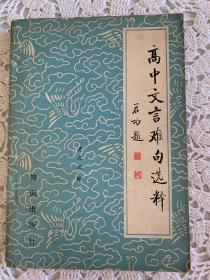 高中文言难句选粹
启功题
知识出版社